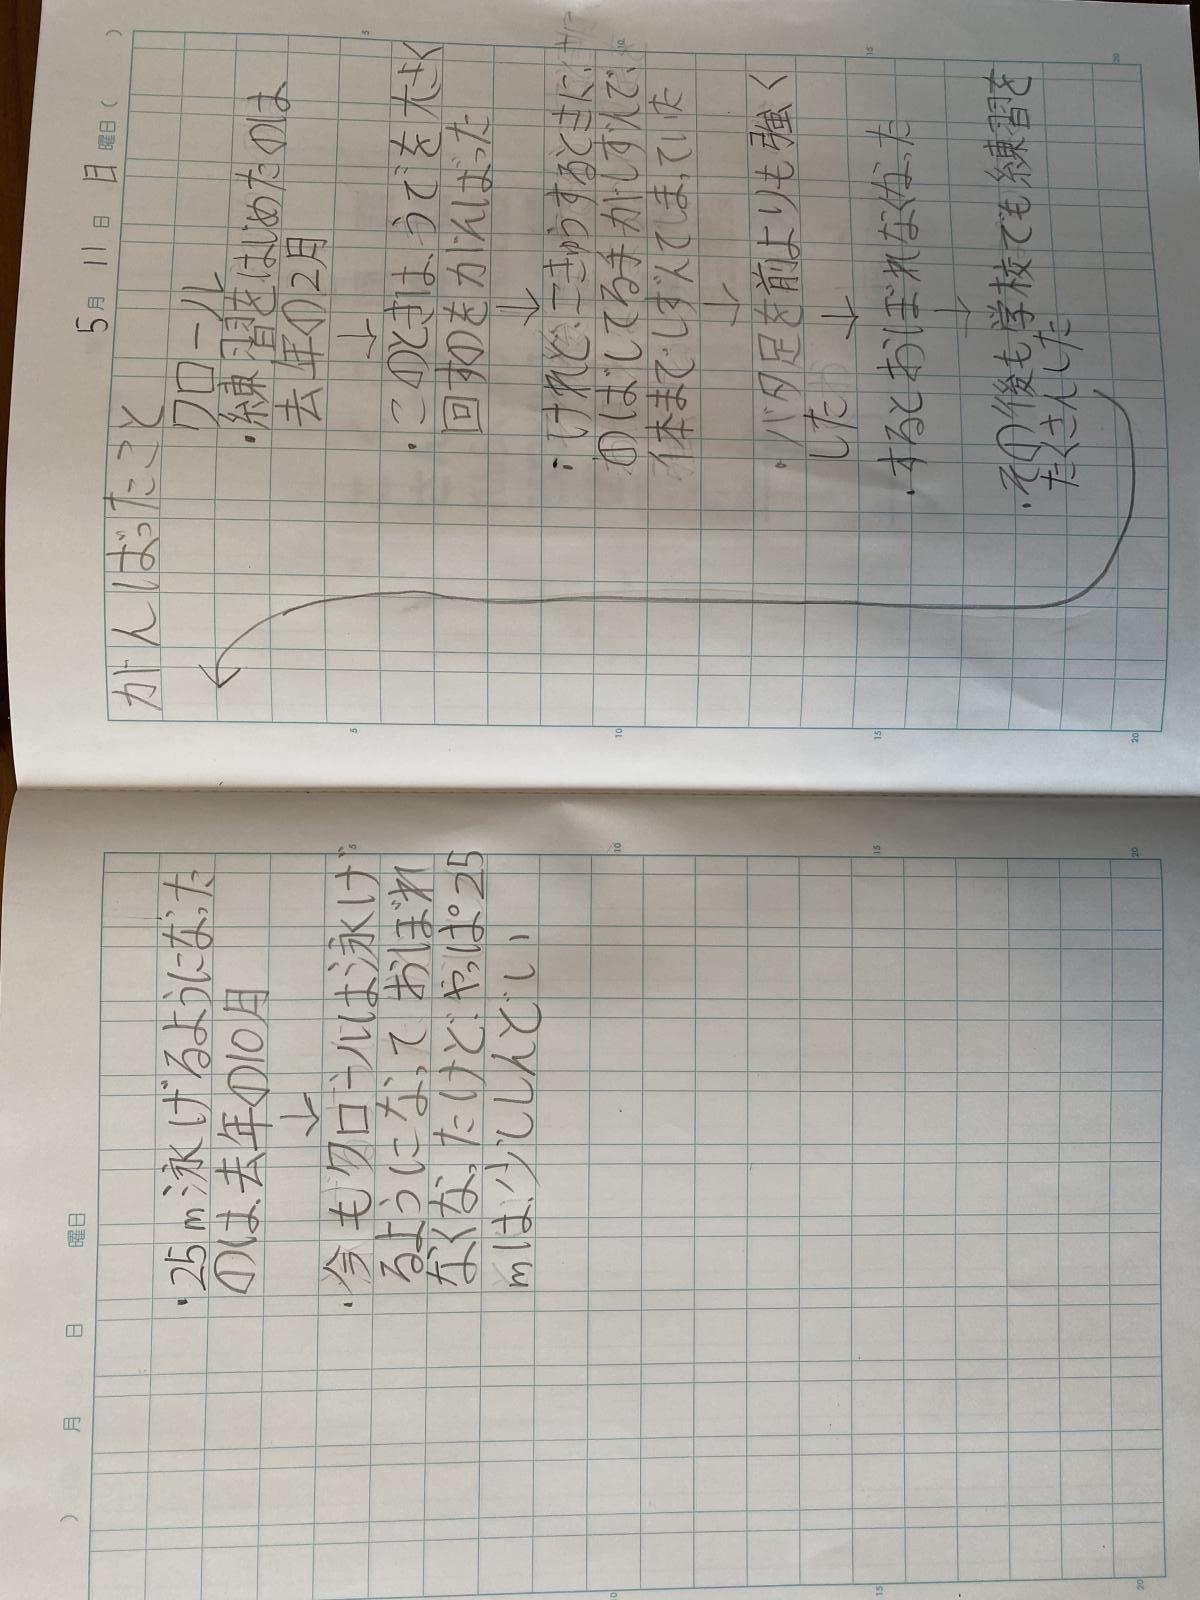 5月 11日 日曜日( )
がんばったこと
クロール
・練習をはじめたのは
去年の2月
↓
・このときは、うでを大きく
回すのをがんばった
↓
・けれど、こきゅうするときに、
のばしてる手がしずんで、
体までしずんでしまっていた
↓
・バタ足を前よりも強く
した
↓
・するとおぼれなくなった
↓
・その後も学校でも練習を
たくさんした
5
10
15
20
5
10
15
20
月 日 曜日( )
・25m泳げるようになった
のは、去年の10月
↓
・今もクロールは泳げ
るようになっておぼれ
なくなったけど、やっぱ25
mは、少ししんどい
5
10
15
20
10
15
20